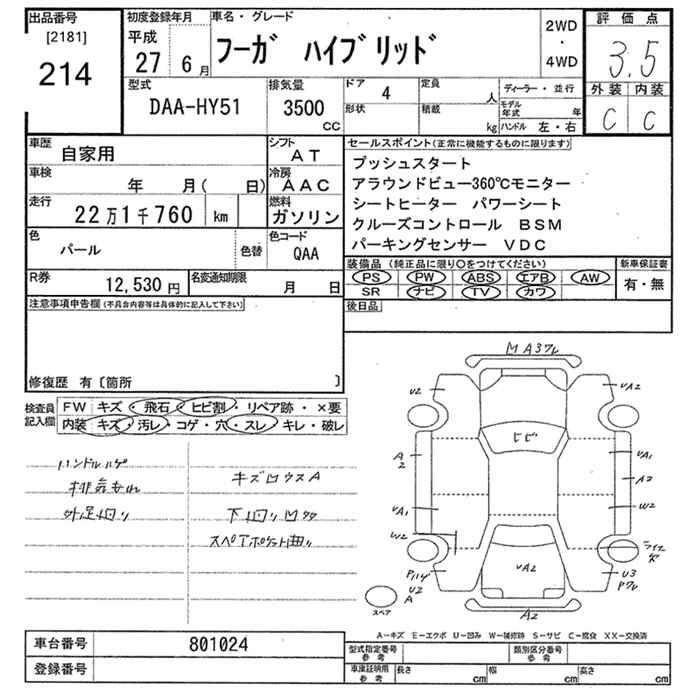 出品番号
[2181]
214
初度登録年月
平成
27 6月
車名・グレード
フーガ ハイブリッド
2WD
・
4WD
評価点
3.5
外装 内装
C C
型式
DAA-HY51
排気量
3500
CC
ドア 4
形状
定員 人
積載 kg
ディーラー・並行
モデル年式 年
ハンドル 左・右
車歴
自家用
シフト
AT
車検
年 月( 日)
冷房
AAC
走行
22万1千760 km
燃料
ガソリン
色
パール
色替
色コード
QAA
R券
12,530円
名変通知期限
月 日
セールスポイント(正常に機能するものに限ります)
プッシュスタート
アラウンドビュー360℃モニター
シートヒーター パワーシート
クルーズコントロール BSM
パーキングセンサー VDC
装備品(純正品に限り○をつけてください)
PS PW ABS エアB AW
SR ナビ TV カワ
新車保証書
有・無
後日品
注意事項申告欄(不具合内容等は具体的に記入して下さい)
修復歴 有〔箇所 〕
検査員
記入欄
FW キズ・飛石・ヒビ割・リペア跡・×要
内装 キズ・汚レ・コゲ・穴・スレ・キレ・破レ
ハンドルハゲ
キズ凹ウスA
外足切り
スペアポケット曲り
MA3ワレ
U2
UA2
ヒビ
A2
UA1
UA1
A2
W2
W2
UA2
U2
A
U3
A2
スペア
A-キズ E-エクボ U-凹み W-補修跡 S-サビ C-腐食 XX-交換済
車台番号 801024
登録番号
型式指定番号
参考
類別区分番号
参考
車庫証明用
参考
長さ cm 幅 cm 高さ cm